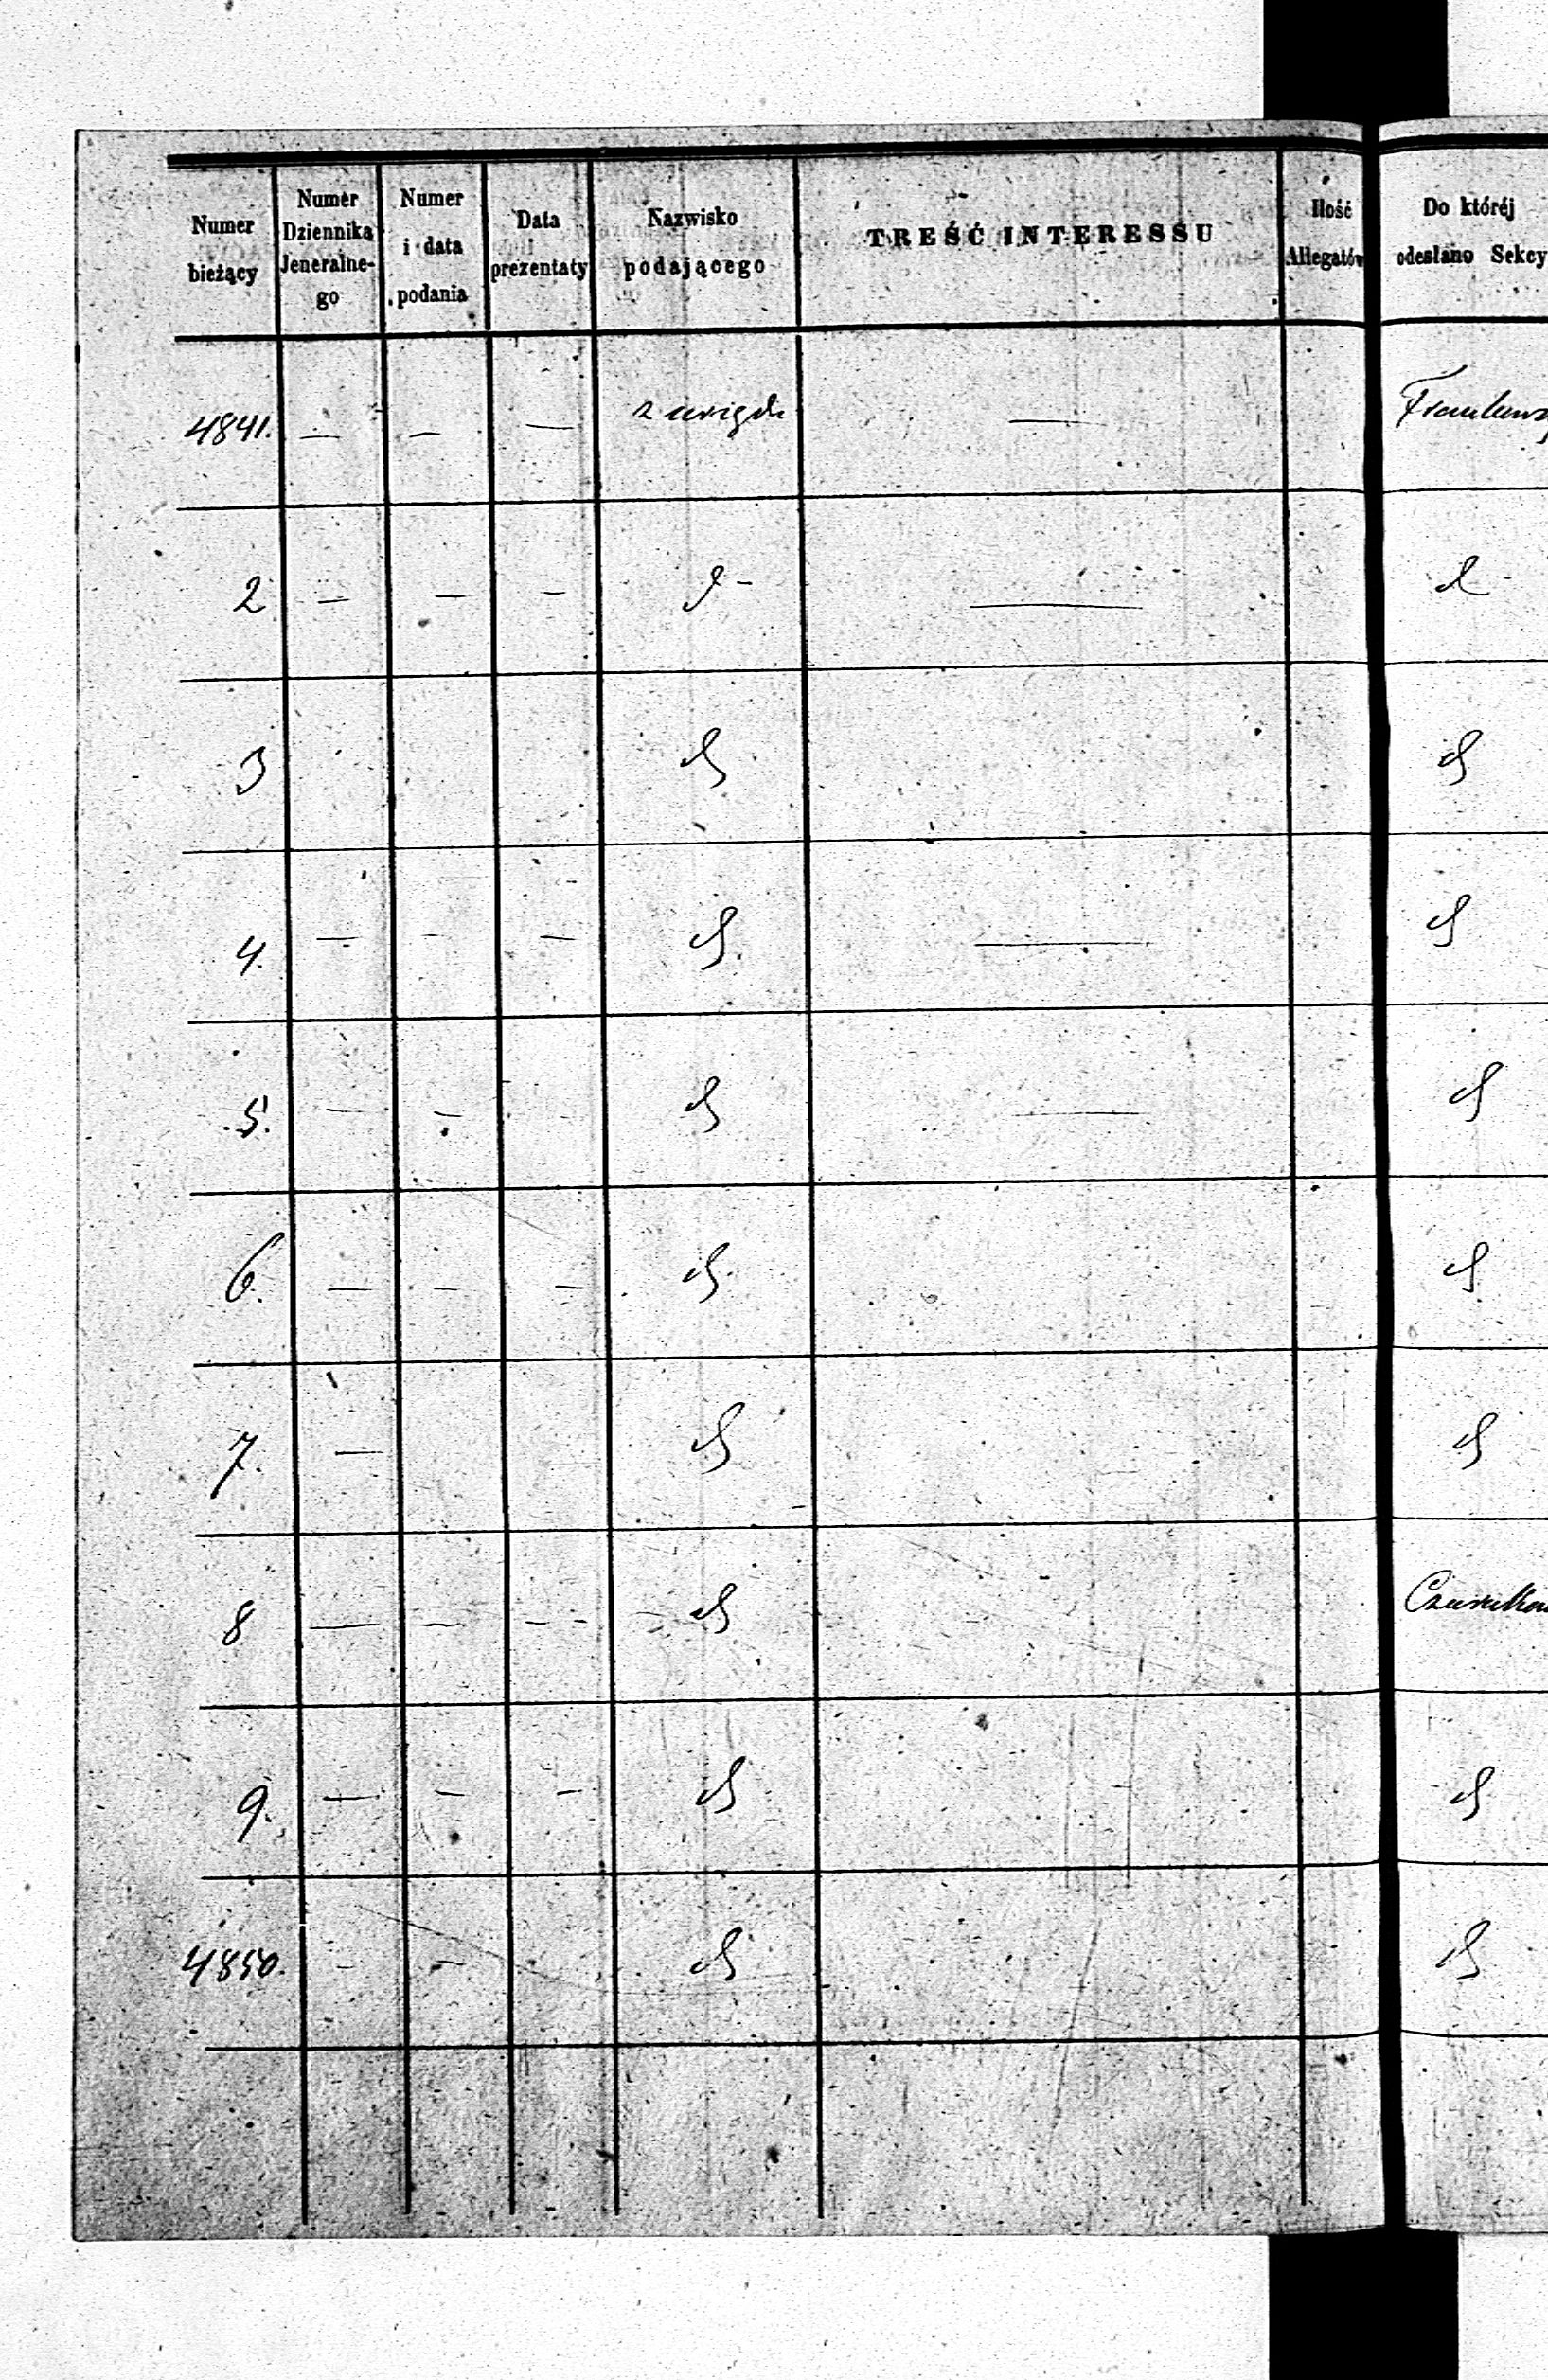 Numer bieżący | Numer Dziennika Jeneralnego | Numer i data podania | Data prezentaty | Nazwisko podającego | TREŚĆ INTERESSU | Ilość Allegatów | Do któréj odesłano Sekcy
4841. | — | — | — | z urzędu | —
2 | — | — | — | d - | — | | d
3 | | | | d | | | d
4. | — | — | — | d. | — | | d
5. | — | — | | d | — | | d
6. | — | — | — | d | | | d.
7. | — | | | d | | | d
8 | — | — | - - | d
9. | — | — | — | d | | | d
4850. | - | — | | d | | | d